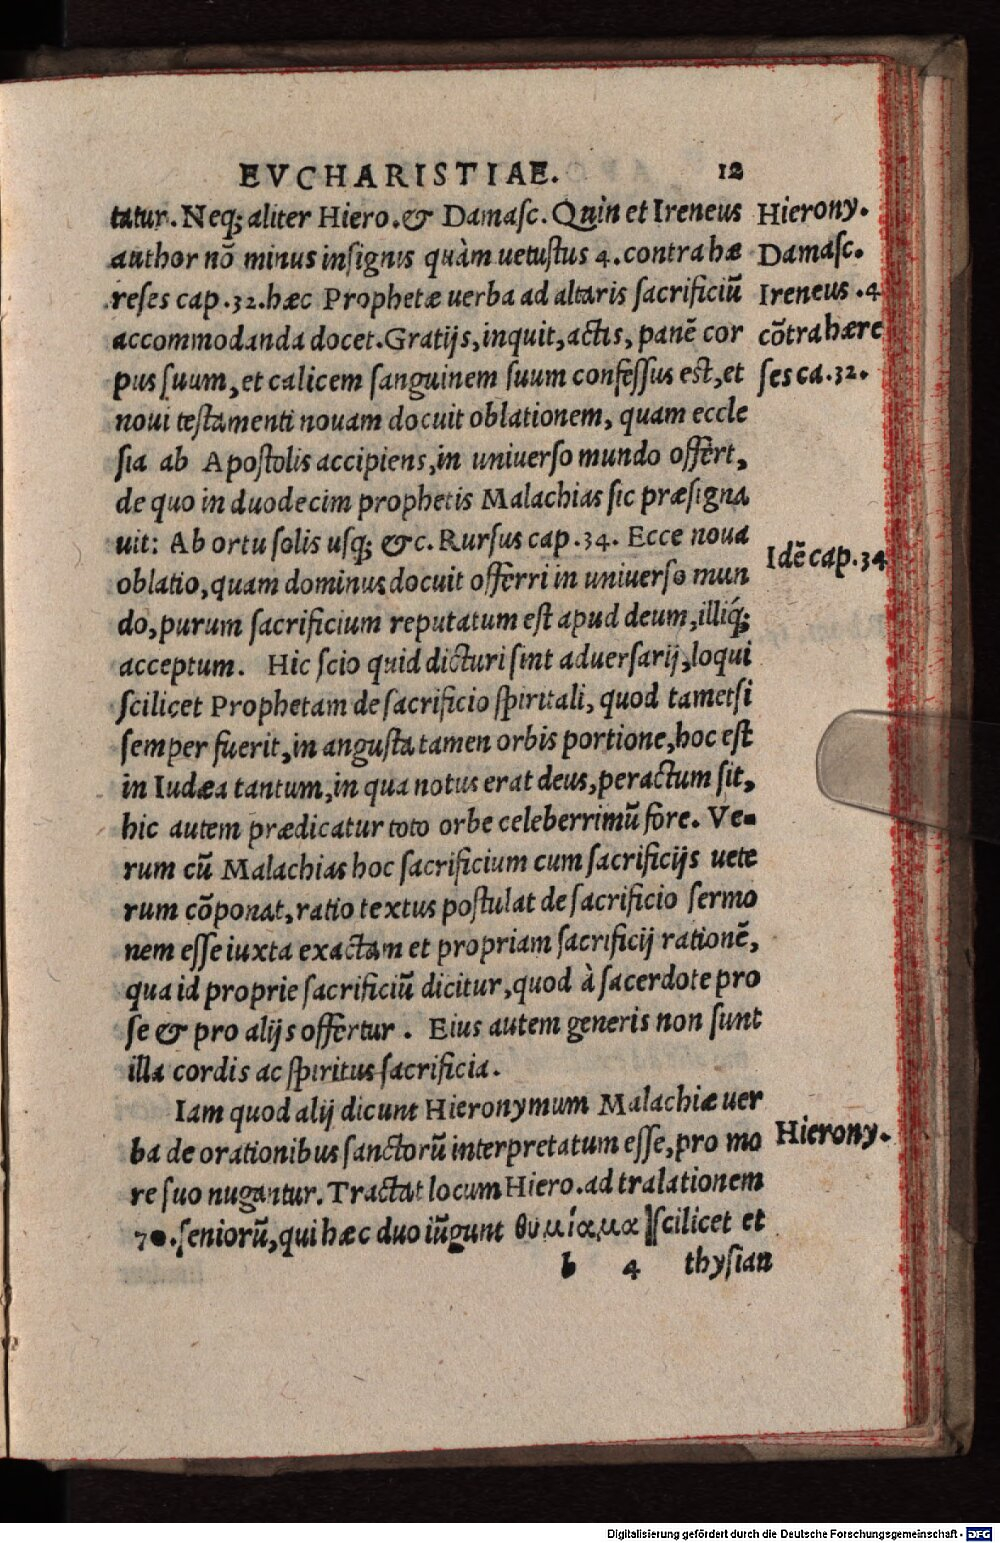 EVCHARISTIAE. 12
tatur. Neq; aliter Hiero. & Damasc. Quin et Ireneus
author nō minus insignis quàm uetustus 4. contra hæ
reses cap. 32. hæc Prophetæ uerba ad altaris sacrificiū
accommodanda docet. Gratijs, inquit, actis, panē cor
pus suum, et calicem sanguinem suum confessus est, et
noui testamenti nouam docuit oblationem, quam eccle
sia ab Apostolis accipiens, in uniuerso mundo offert,
de quo in duodecim prophetis Malachias sic præsigna
uit: Ab ortu solis usq; &c. Rursus cap. 34. Ecce noua
oblatio, quam dominus docuit offerri in uniuerso mun
do, purum sacrificium reputatum est apud deum, illiq́;
acceptum. Hic scio quid dicturi sint aduersarij, loqui
scilicet Prophetam de sacrificio spiritali, quod tametsi
semper fuerit, in angusta tamen orbis portione, hoc est
in Iudæa tantum, in qua notus erat deus, peractum sit,
hic autem prædicatur toto orbe celeberrimū fore. Ve-
rum cū Malachias hoc sacrificium cum sacrificijs uete
rum cōponat, ratio textus postulat de sacrificio sermo
nem esse iuxta exactam et propriam sacrificij rationē,
qua id proprie sacrificiū dicitur, quod à sacerdote pro
se & pro alijs offertur. Eius autem generis non sunt
illa cordis ac spiritus sacrificia.
Iam quod alij dicunt Hieronymum Malachiæ uer
ba de orationibus sanctorū interpretatum esse, pro mo
re suo nugantur. Tractat locum Hiero. ad tralationem
70. seniorū, qui hæc duo iūgunt θυμίαμα ] scilicet et
b 4 thysian
Hierony.
Damasc.
Ireneus. 4
cōtra hære
ses ca. 32.
Idē cap. 34
Hierony.
Digitalisierung gefördert durch die Deutsche Forschungsgemeinschaft - DFG